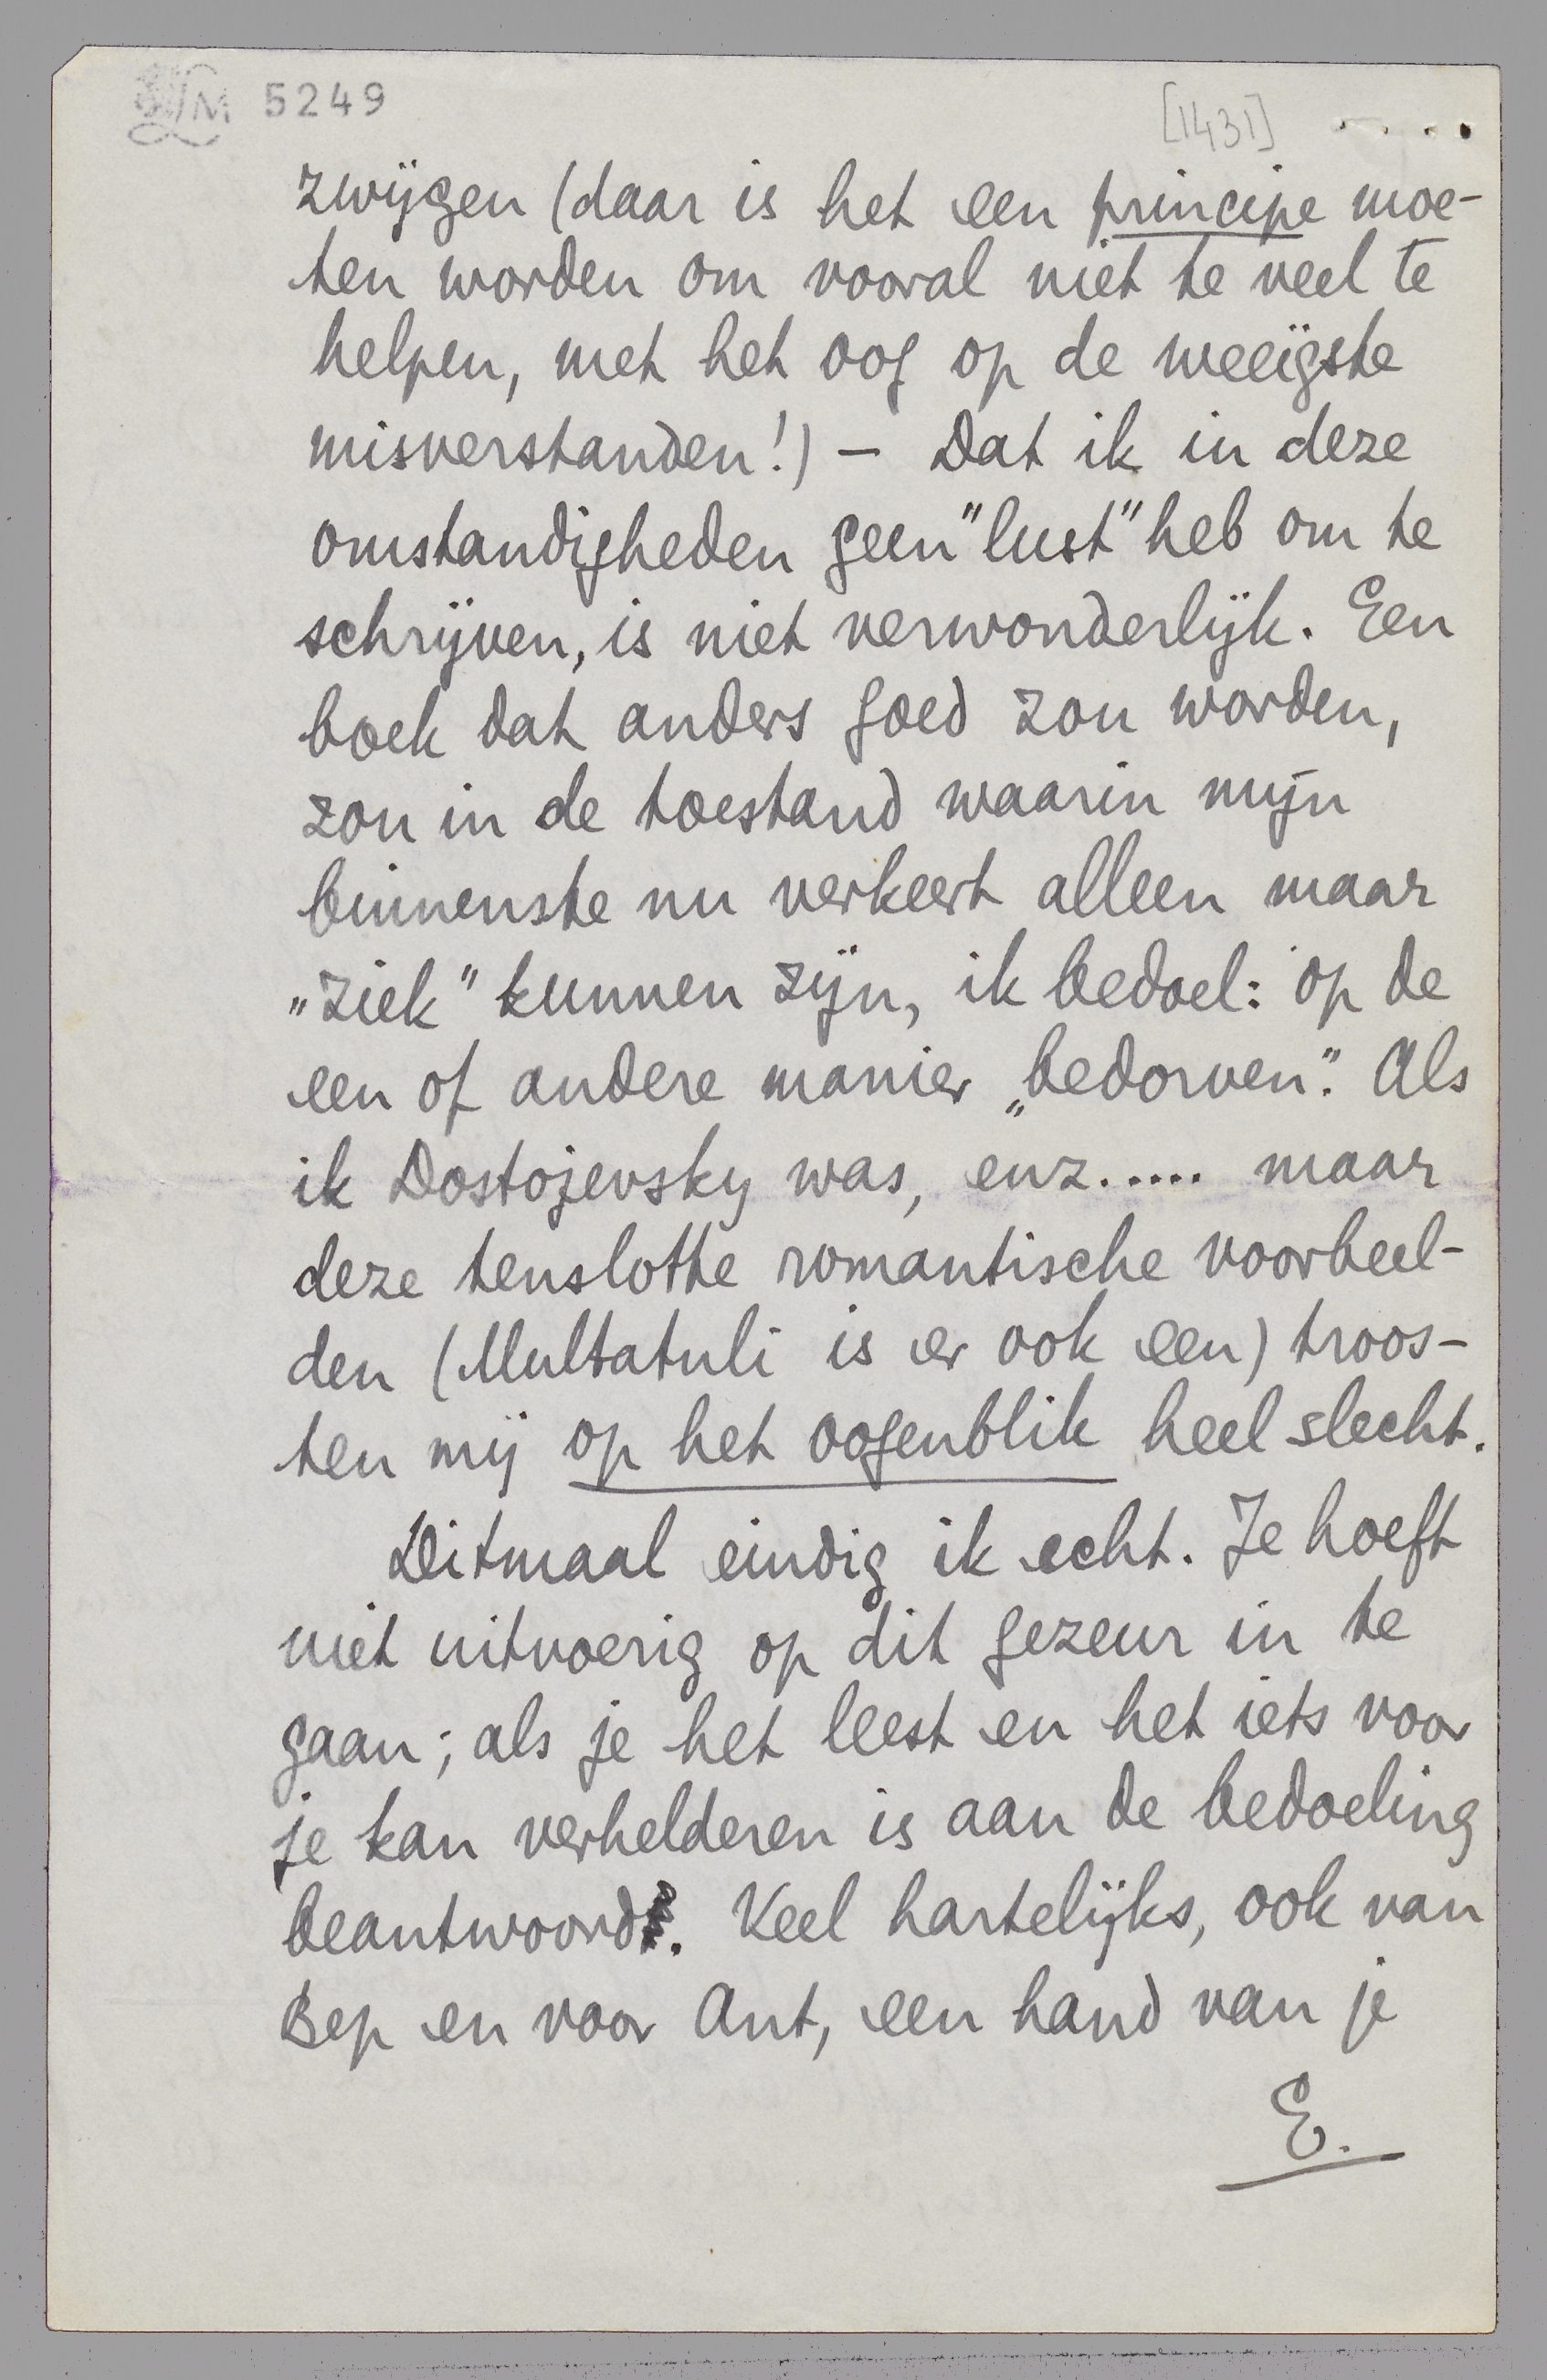 LM 5249
[1431]
zwijgen (daar is het een principe moe-
ten worden om vooral niet te veel te
helpen, met het oog op de weeïgste
misverstanden!) – Dat ik in deze
omstandigheden geen "lust" heb om te
schrijven, is niet verwonderlijk. Een
boek dat anders goed zou worden,
zou in de toestand waarin mijn
binnenste nu verkeert alleen maar
„ziek" kunnen zijn, ik bedoel: op de
een of andere manier „bedorven". Als
ik Dostojevsky was, enz..... maar
deze tenslotte romantische voorbeel-
den (Multatuli is er ook een) troos-
ten mij op het oogenblik heel slecht.
Ditmaal eindig ik echt. Je hoeft
niet uitvoerig op dit gezeur in te
gaan; als je het leest en het iets voor
je kan verhelderen is aan de bedoeling
beantwoord. Veel hartelijks, ook van
Bep en voor Ant, een hand van je
E.